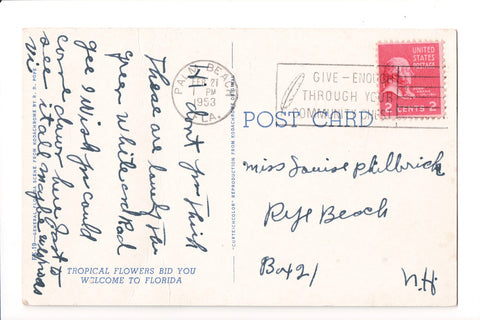 Hi don't you think
These are lovely the
green white and Red
gee I wish you could
come down here just to
see it all maybe
Vi
TROPICAL FLOWERS BID YOU
WELCOME TO FLORIDA
PALM BEACH
FEB 21
PM
1953
FLA.
GIVE-ENOUGH
THROUGH YOUR
COMMUNITY CHEST
UNITED
STATES
POSTAGE
2 CENTS 2
POST CARD
"CURTEICHCOLOR" REPRODUCTION FROM KODACHROME
Miss Louise Philbrick
Rye Beach
Box 21
N.H.